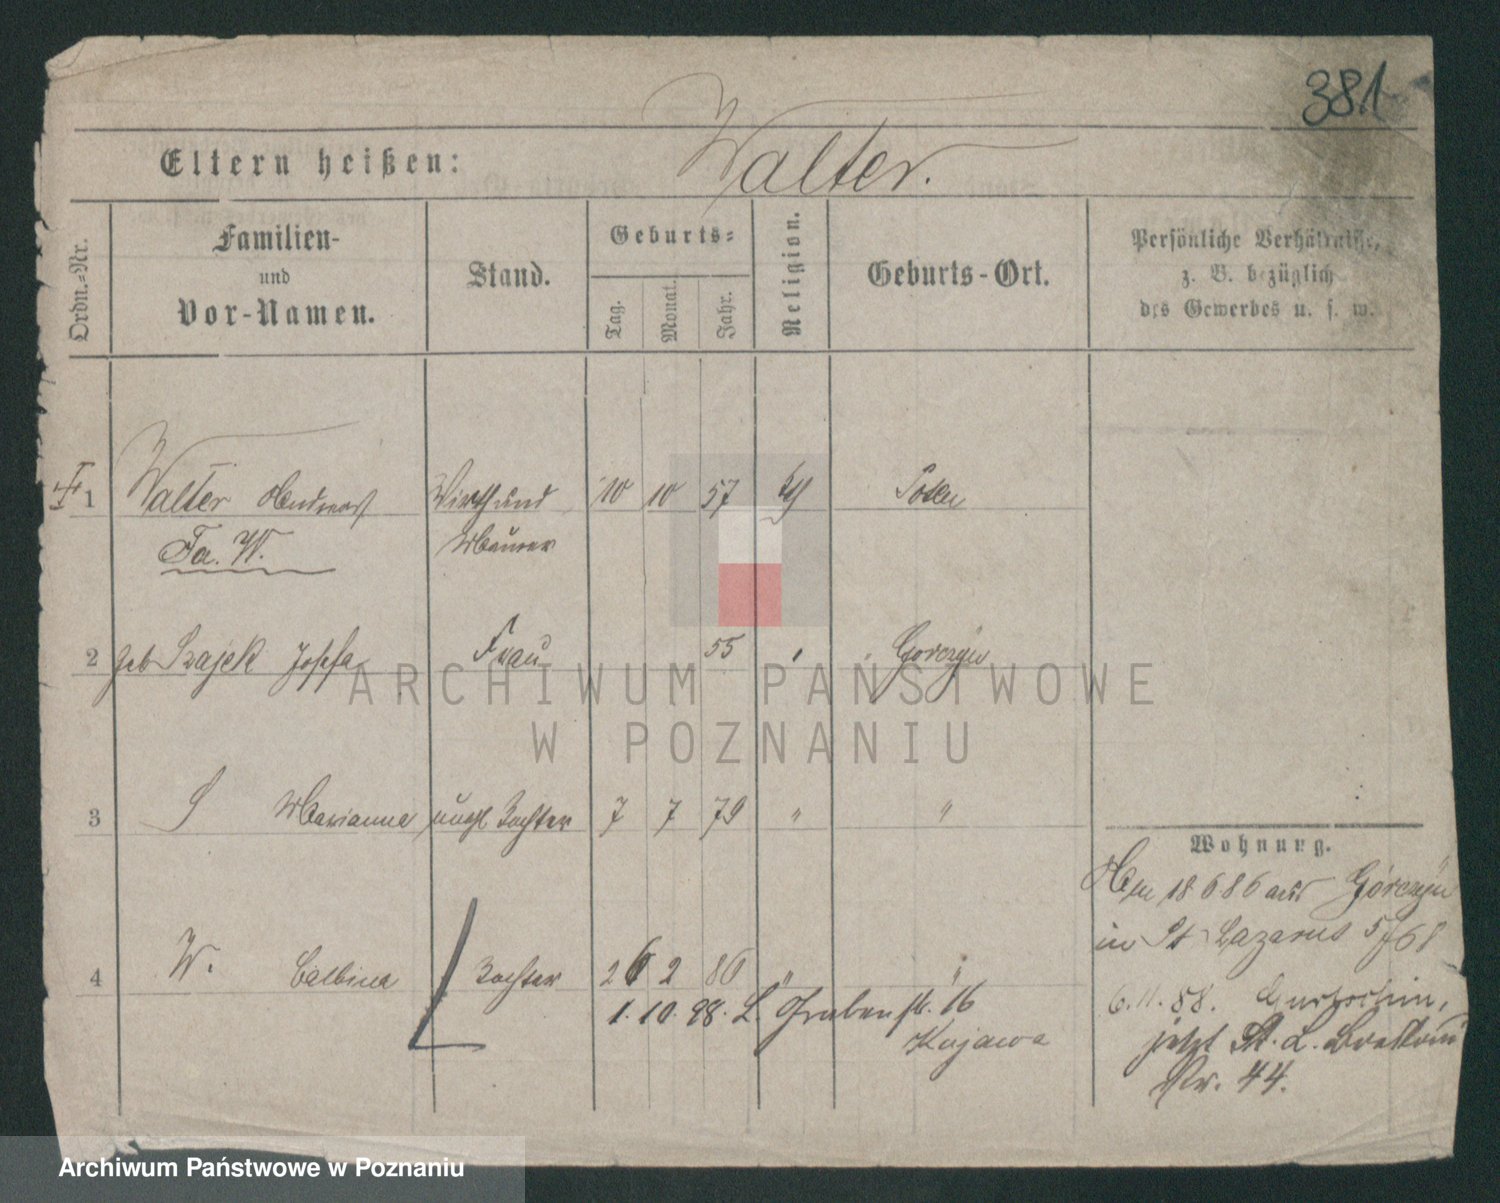 381
Eltern heißen: Walter.
Ordn.-Nr.
Familien-
und
Vor-Namen.
Stand.
Geburts-
Tag.
Monat.
Jahr.
Religion.
Geburts-Ort.
Persönliche Verhältnisse,
z. B. bezüglich
des Gewerbes u. s. w.
1 Walter Andreas Wirth und 10 10 57 Posen
Fa. W. Maurer
2 geb Szajek Josefa Frau 55 Gorczyn
3 S Marianna unehl Tochter 7 7 79 " "
Wohnung.
Am 18 6 86 aus Górczyn
in St Lazarus 5/68
4 W. Balbina Tochter 26 2 86 " "
1. 10. 98. L. Grabenstr. 16
Kujawa
6. 11. 88. Gurtschin,
jetzt St. L.
Nr. 44.
ARCHIWUM PAŃSTWOWE
W POZNANIU
Archiwum Państwowe w Poznaniu